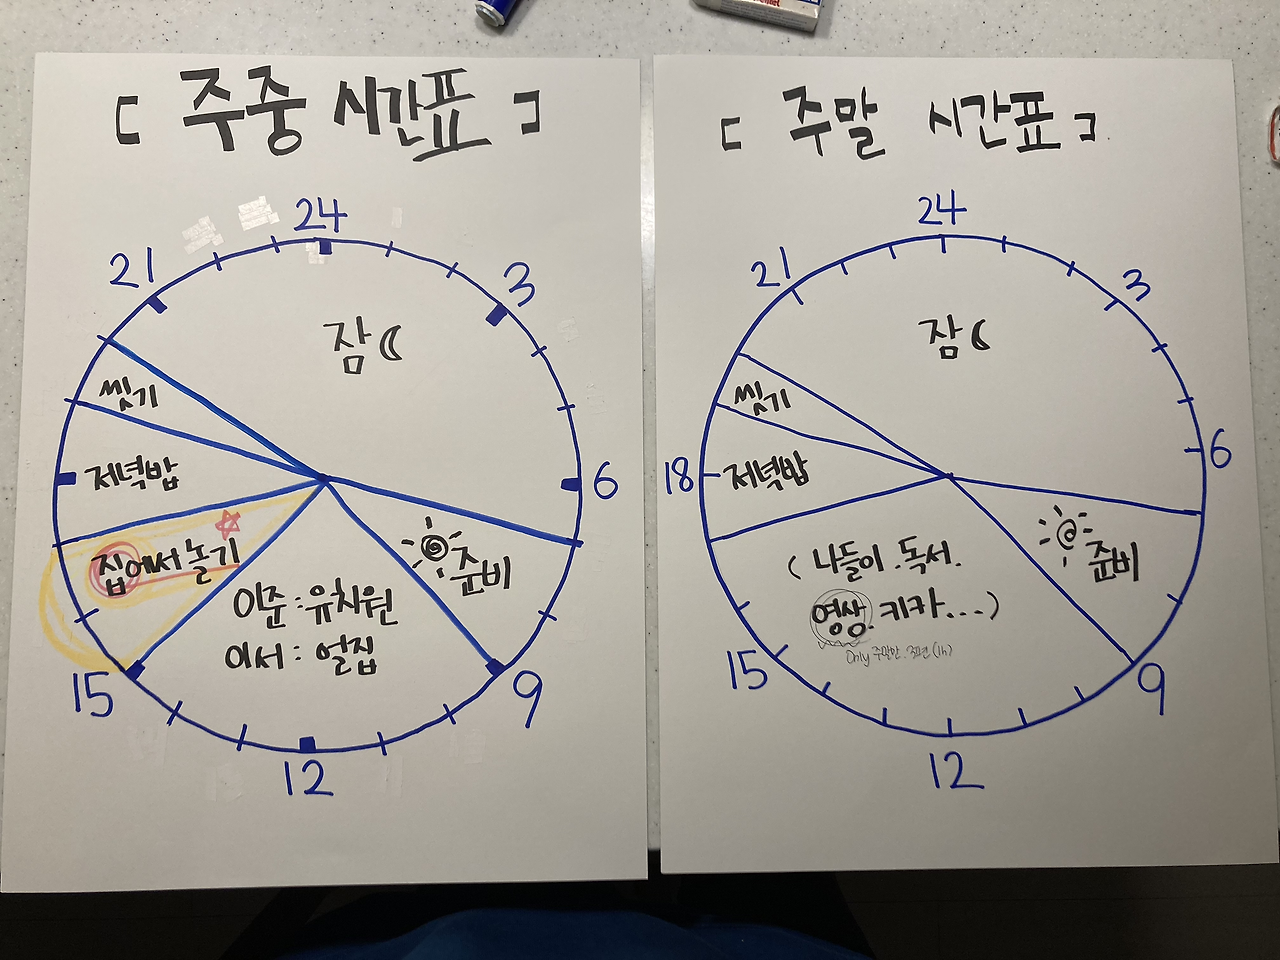 [ 주중 시간표 ]
24
21
3
잠
씻기
저녁밥
6
집에서 놀기
준비
이준 : 유치원
이서 : 얼집
15
9
12
[ 주말 시간표 ]
24
21
3
잠
씻기
18
저녁밥
6
준비
( 나들이 . 독서 .
영상 . 키카 ... )
Only 주말만 . (1h)
15
9
12